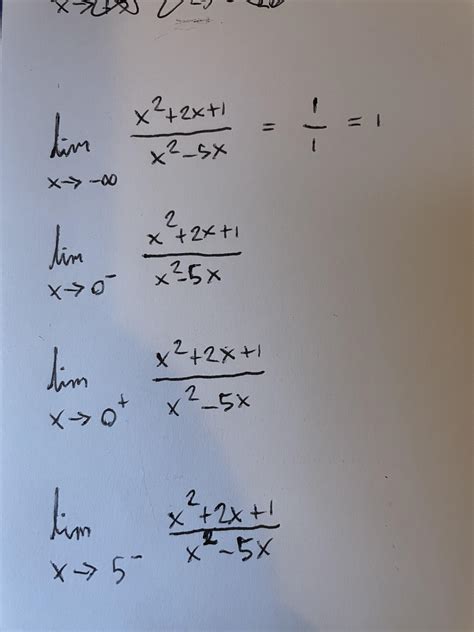 lim x→-∞ (x²+2x+1)/(x²-5x) = 1/1 = 1
lim x→0⁻ (x²+2x+1)/(x²-5x)
lim x→0⁺ (x²+2x+1)/(x²-5x)
lim x→5⁻ (x²+2x+1)/(x²-5x)